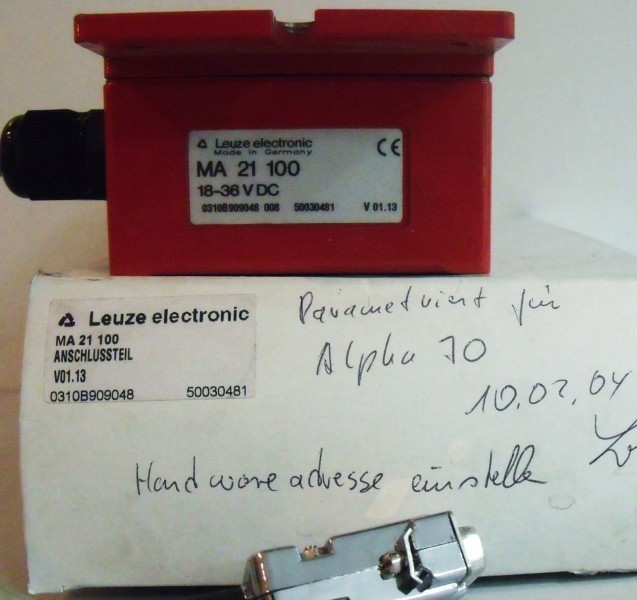 Leuze electronic
Made in Germany
CE
MA 21 100
18-36 V DC
0310B909048 008 50030481 V 01.13
Leuze electronic
MA 21 100
ANSCHLUSSTEIL
V01.13
0310B909048 50030481
Parametriert für
Alpha 70
10.02.04
Hardwareadresse einstellen